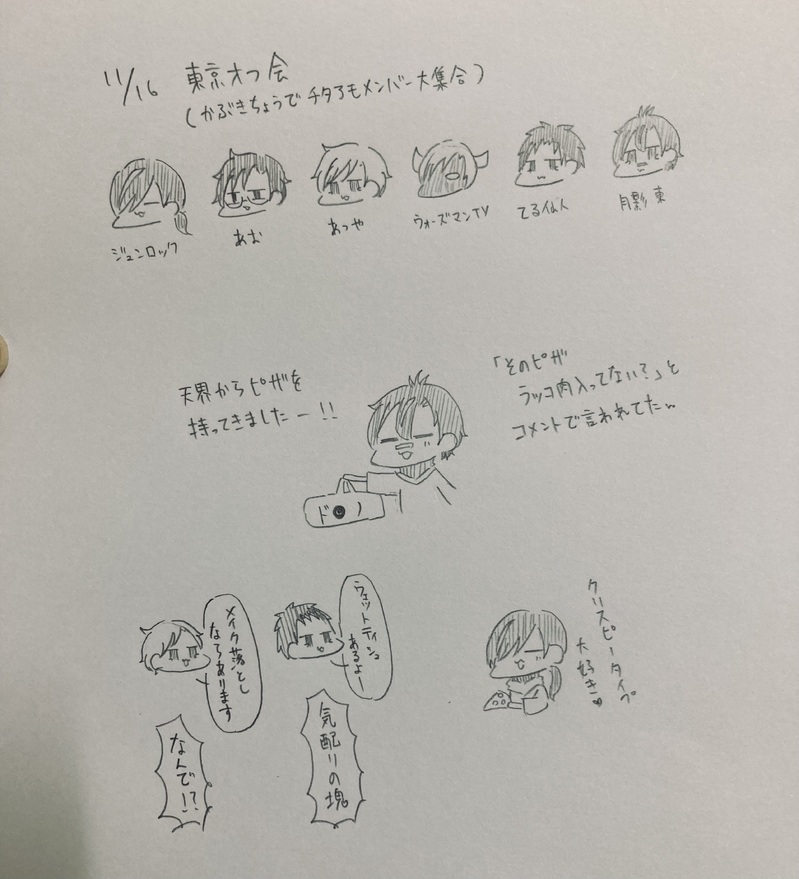 11/16 東京オフ会
(かぶきちょうでチタろもメンバー大集合)
ジュンロック
あお
あつや
ウォーズマンTV
てる仙人
月影 東
天界からピザを
持ってきましたー!!
「そのピザ
ラッコ肉入ってない?」と
コメントで言われてたw
ド●ノ
メイク落とし
ならあります
なんで!?
ウェットティシュ
あるよー
気配りの塊
クリスピータイプ
大好き♥